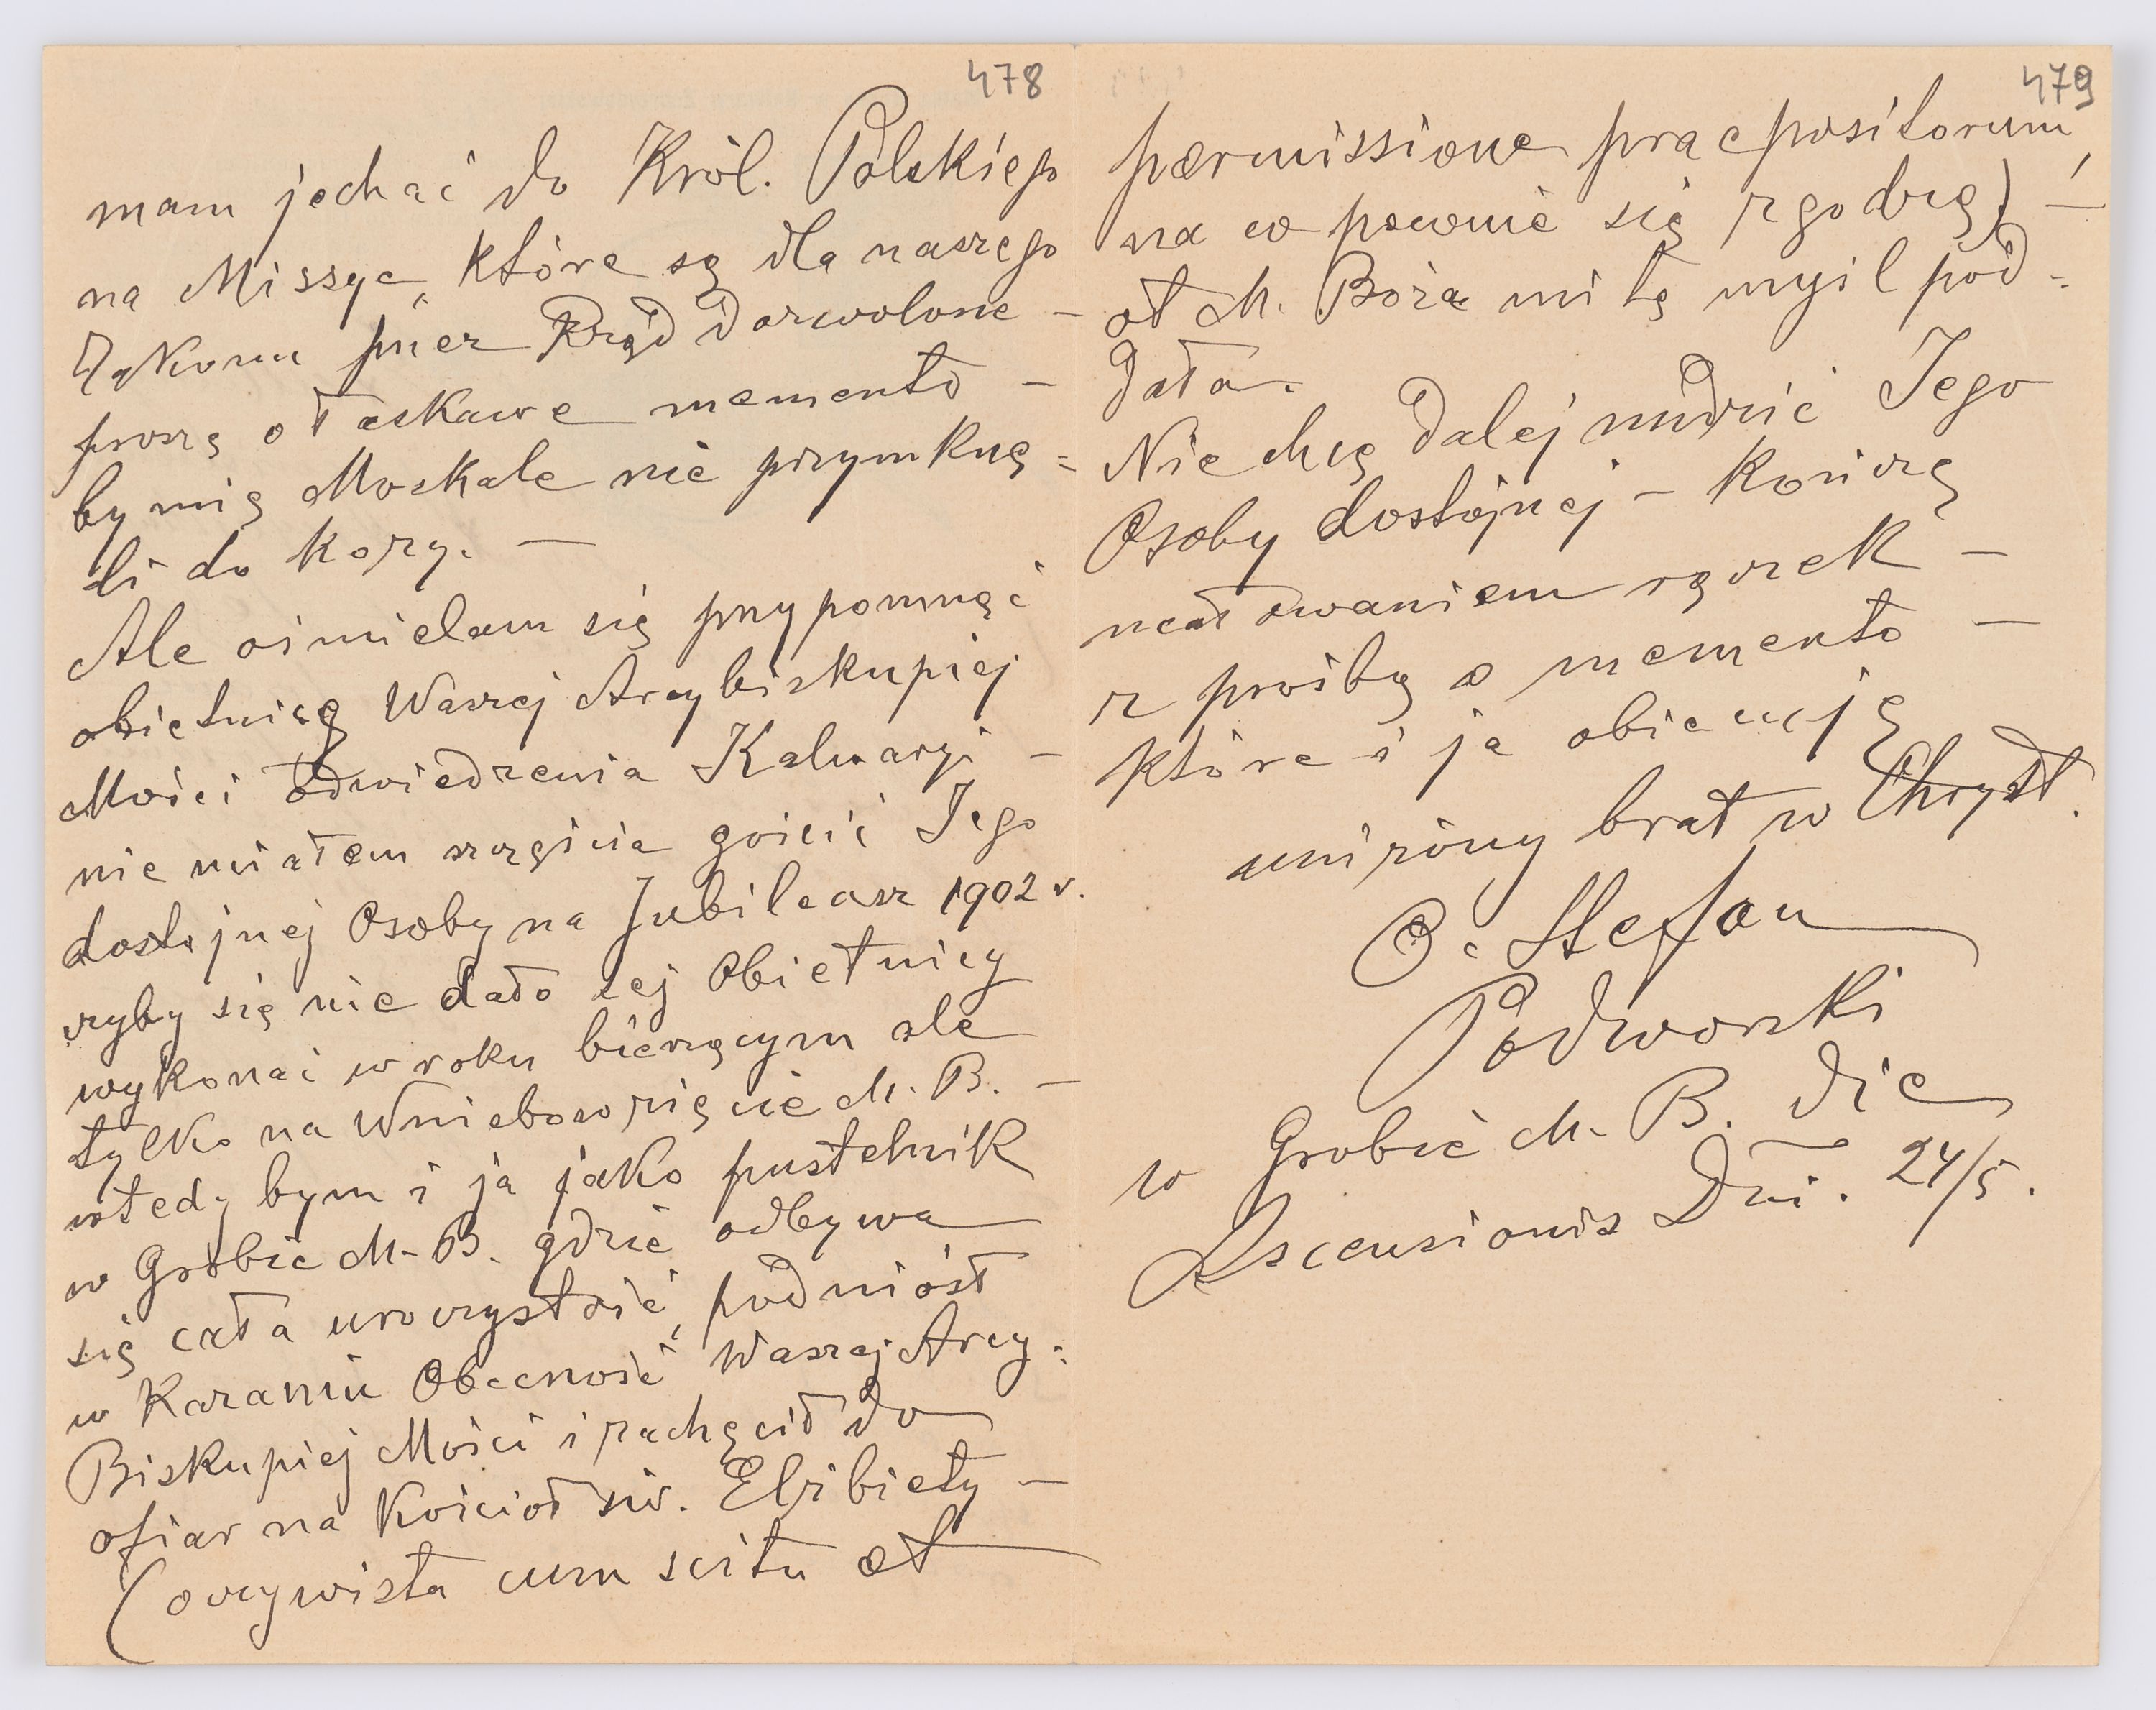 478
mam jechać do Król. Polskiego
na Missye, które są dla naszego
Zakonu przez Rząd dozwolone –
proszę o łaskawe memento –
by mię Moskale nie przymknę=
li do kozy. –
Ale ośmielam się przypomnąć
obietnicę Waszej Arcybiskupiej
Mości odwiedzenia Kalwaryi –
nie miałem szczęścia gościć Jego
dostojnej Osoby na Jubileasz 1902 r.
czyby się nie dało tej Obietnicy
wykonać w roku bieżącym ale
tylko na Wniebowzięcie M. B. –
wtedy bym i ja jako pustelnik
w Grobie M. B. gdzie odbywa
się cała uroczystość, podniósł
w Kazaniu Obecność Waszej Arcy=
Biskupiej Mości i zachęcił do
ofiar na Kościoł św. Elżbiety –
(oczywista cum scitu et
479
permissione praepositorum,
na co pewnie się zgodzą) –
ot M. Boża mi tę myśl pod=
dała.
Nie chcę dalej nudzić Jego
Osoby dostojnej – Kończę
ucałowaniem rączek –
z prośbą o memento –
które i ja obiecuję
uniżony brat w Chryst.
O. Stefan
Podworski
w Grobie M. B. die
Ascensionis Dni. 24/5.